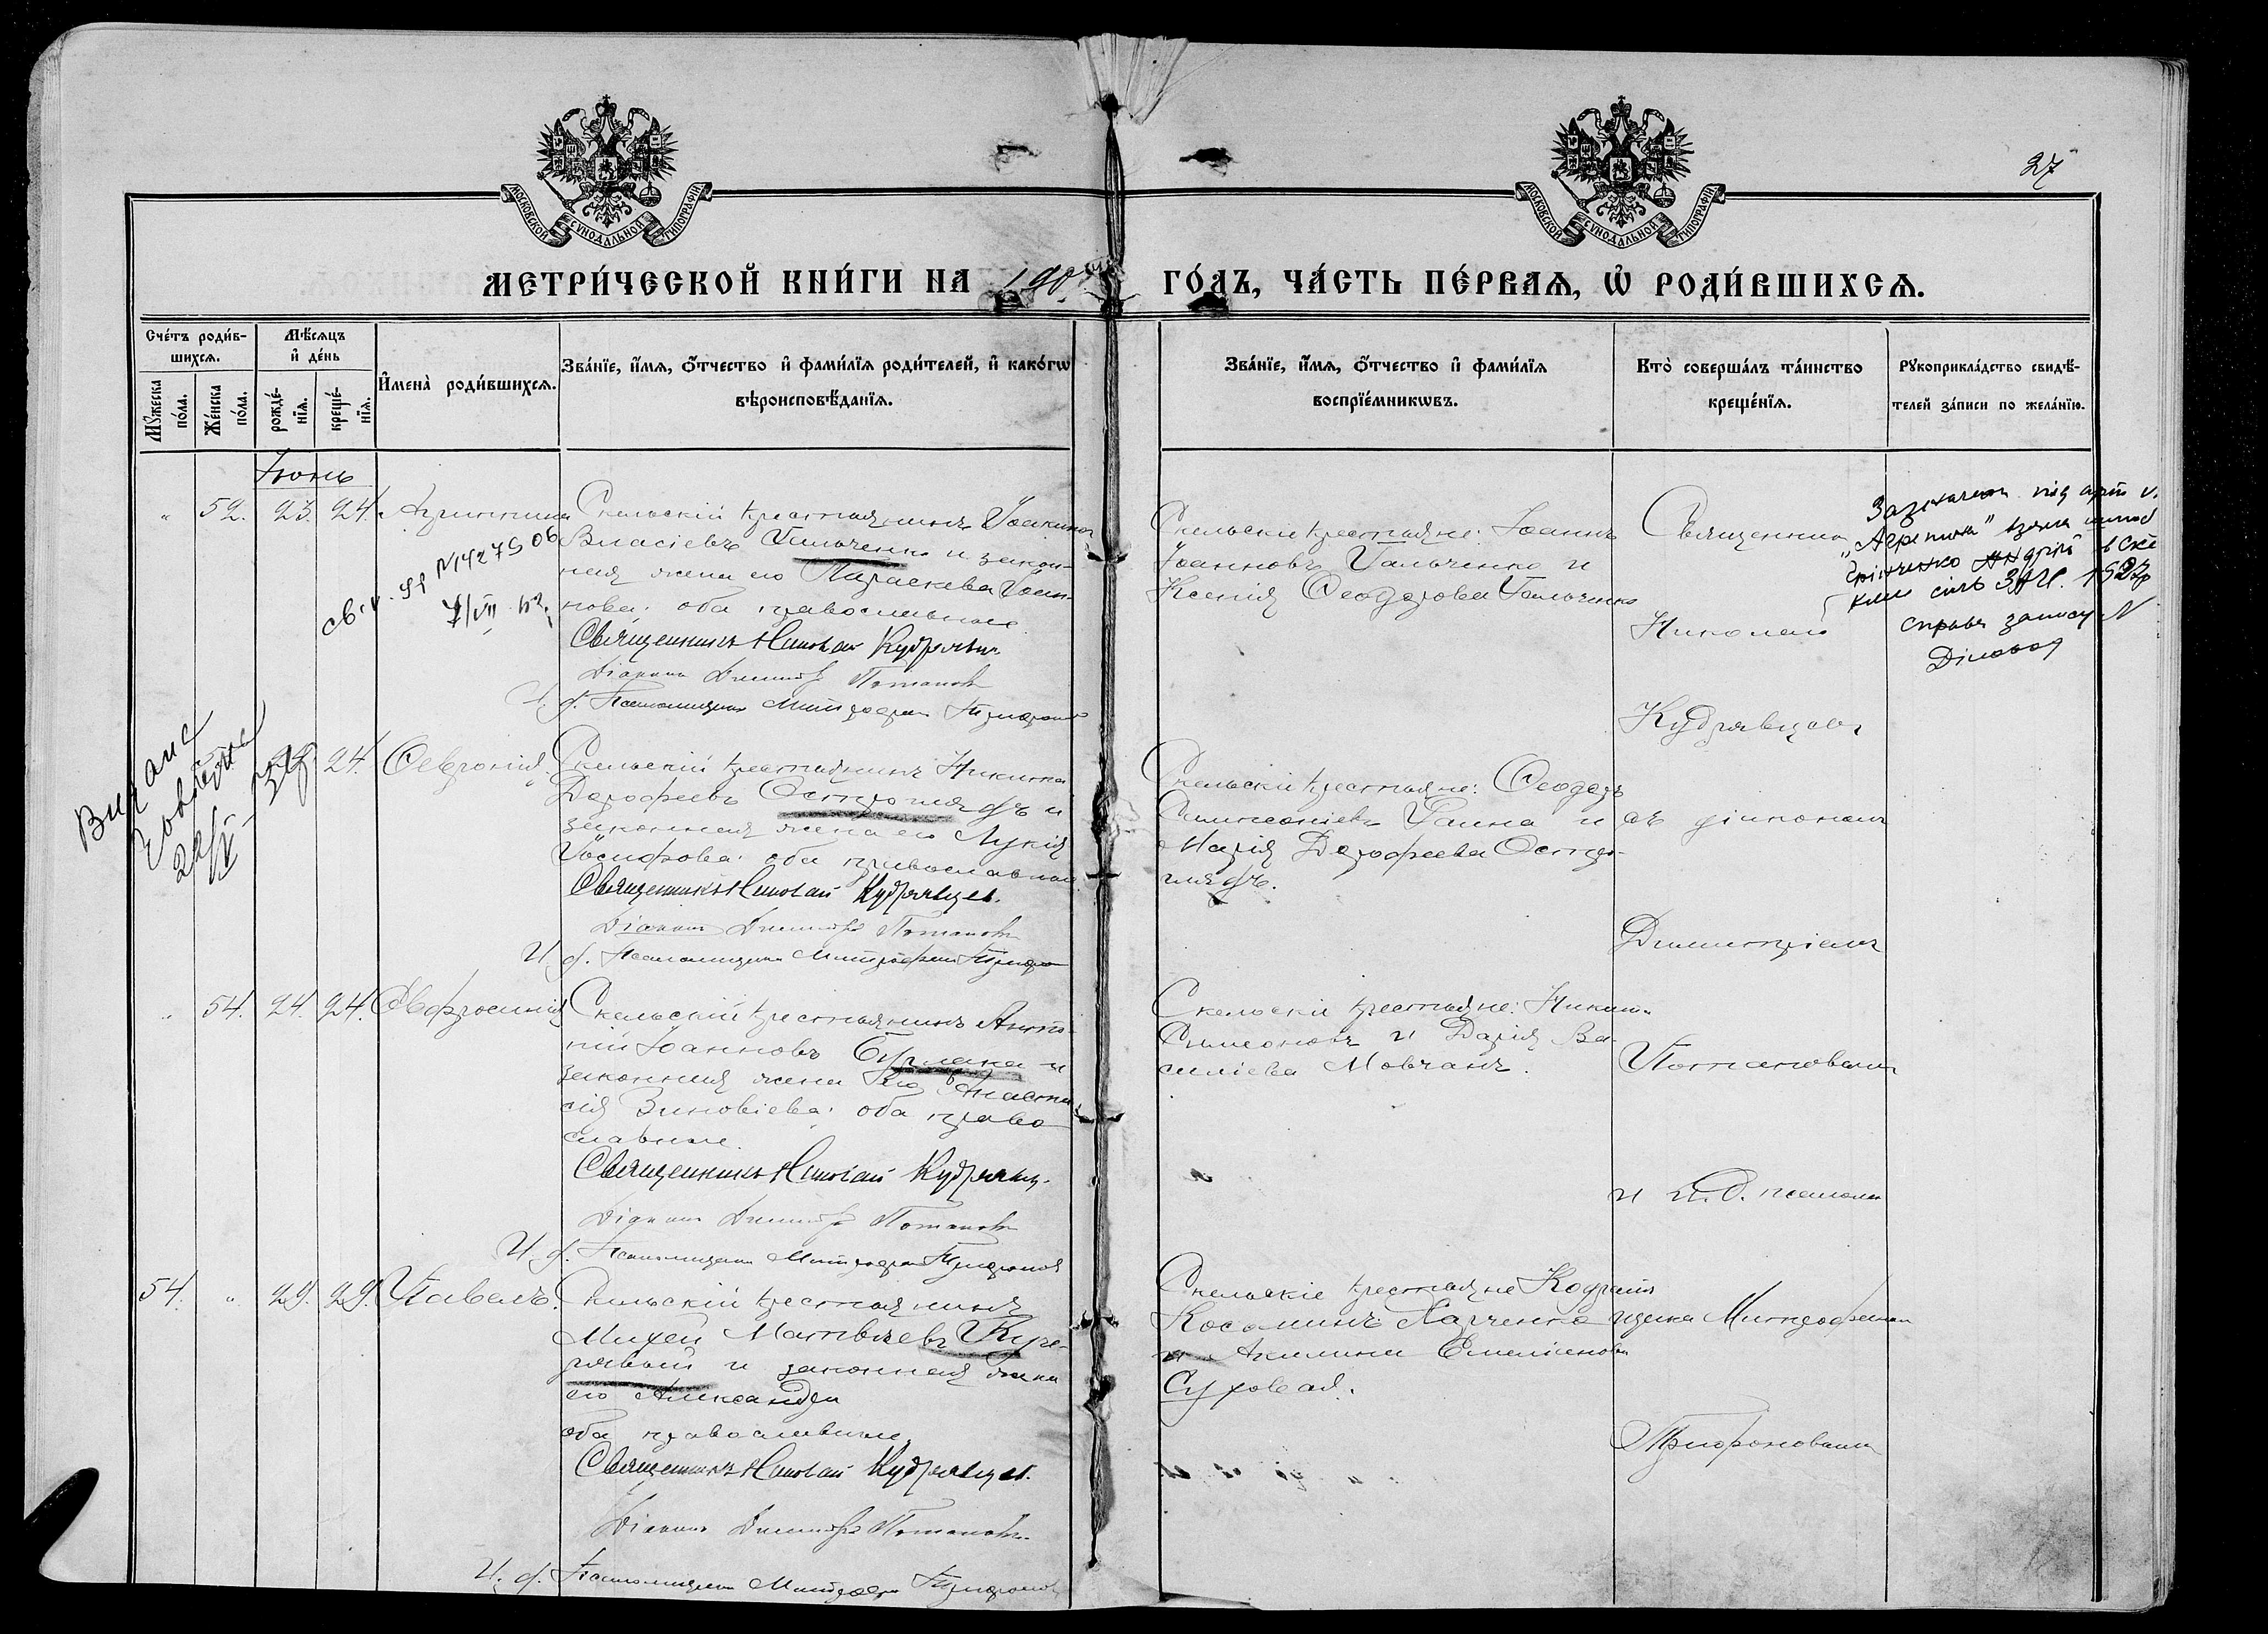 27
МОСКОВСКОЙ СѴНОДАЛЬНОЙ ТИПОГРАФІИ
МОСКОВСКОЙ СѴНОДАЛЬНОЙ ТИПОГРАФІИ
МЕТРИ́ЧЕСКОЙ КНИ́ГИ НА 190
ГО́ДЪ, ЧА́СТЬ ПЕ́РВАѦ, Ѽ РОДИ́ВШИХСѦ.
Сче́тъ роди́в-
шихсѧ.
Мꙋ́жеска
по́ла.
Же́нска
по́ла.
Мѣ́сѧцъ
и҆ де́нь
рожде́-
нїѧ.
креще́-
нїѧ.
И҆мена̀ роди́вшихсѧ.
Зва́нїе, и҆́мѧ, ѻ҆́тчество и҆ фами́лїѧ роди́телей, и҆ како́гѡ
вѣроисповѣ́данїѧ.
Зва́нїе, и҆́мѧ, ѻ҆́тчество и҆ фами́лїѧ
воспрїе́мникѡвъ.
Кто̀ соверша́лъ та́инство
креще́нїѧ.
Рꙋкоприкла́дство свидѣ́-
телей за́писи по жела́нїю.
Іюнь
" 52. 23. 24. Агриппина
Скельскій крестьянинъ Іоакимъ
Власіевъ Гильченко и закон-
ная жена его Параскева Іоан-
нова: оба православные
Священникъ Николай Кудрявцев
Діаконъ Димитрій Потаповъ
И. д. Псаломщика Митрофанъ Трифоновъ
Скельскіе крестьяне: Іоаннъ
Іоанновъ Гальченко и
Ксенія Ѳеодорова Гальченко
Священникъ
Николай
Кудрявцевъ
съ діакономъ
Димитріемъ
Потаповымъ
и и. д. псалом
щика Митрофаном
Трифоновымъ
"Агрепина"
1927р
запису N
Діловод
N14279 06
7/VII
Видано
24. Ѳевронія
Скельскій крестьянинъ Никита
Дорофеевъ Остро и
законная жена его Лукія
Іосифова: оба православные
Священникъ Николай Кудрявцев.
Діаконъ Димитрій Потаповъ
И. д. Псаломщика Митрофанъ Трифо
Скельскіе крестьяне: Ѳеодоръ
Симеоніевъ Ганна и
Марія Дорофеева Остро-
" 54. 24. 24. Евфросинія
Скельскій крестьянинъ Анто-
ній Іоанновъ Бурлака и
законная жена его Анаста
сія Зиновіева: оба право
славные.
Священникъ Николай Кудрявц.
Діаконъ Димитрій Потаповъ
И. д. Псаломщика Митрофанъ Трифонов
Скельскіе крестьяне: Никита
Симеоновъ и Дарія Ва-
силіева Мовчанъ.
54. " 29. 29. Павелъ.
Скельскій крестьянинъ
Михей Матвѣевъ Куче-
рявый и законная жена
его Александра
оба православные.
Священникъ Николай Кудрявцев.
Діаконъ Димитрій Потаповъ.
И. д. Псаломщика Митрофанъ Трифонов
Скельскіе крестьяне Кодратъ
Косьминъ Харченко
и Акилина Емеліанова
Суховая.